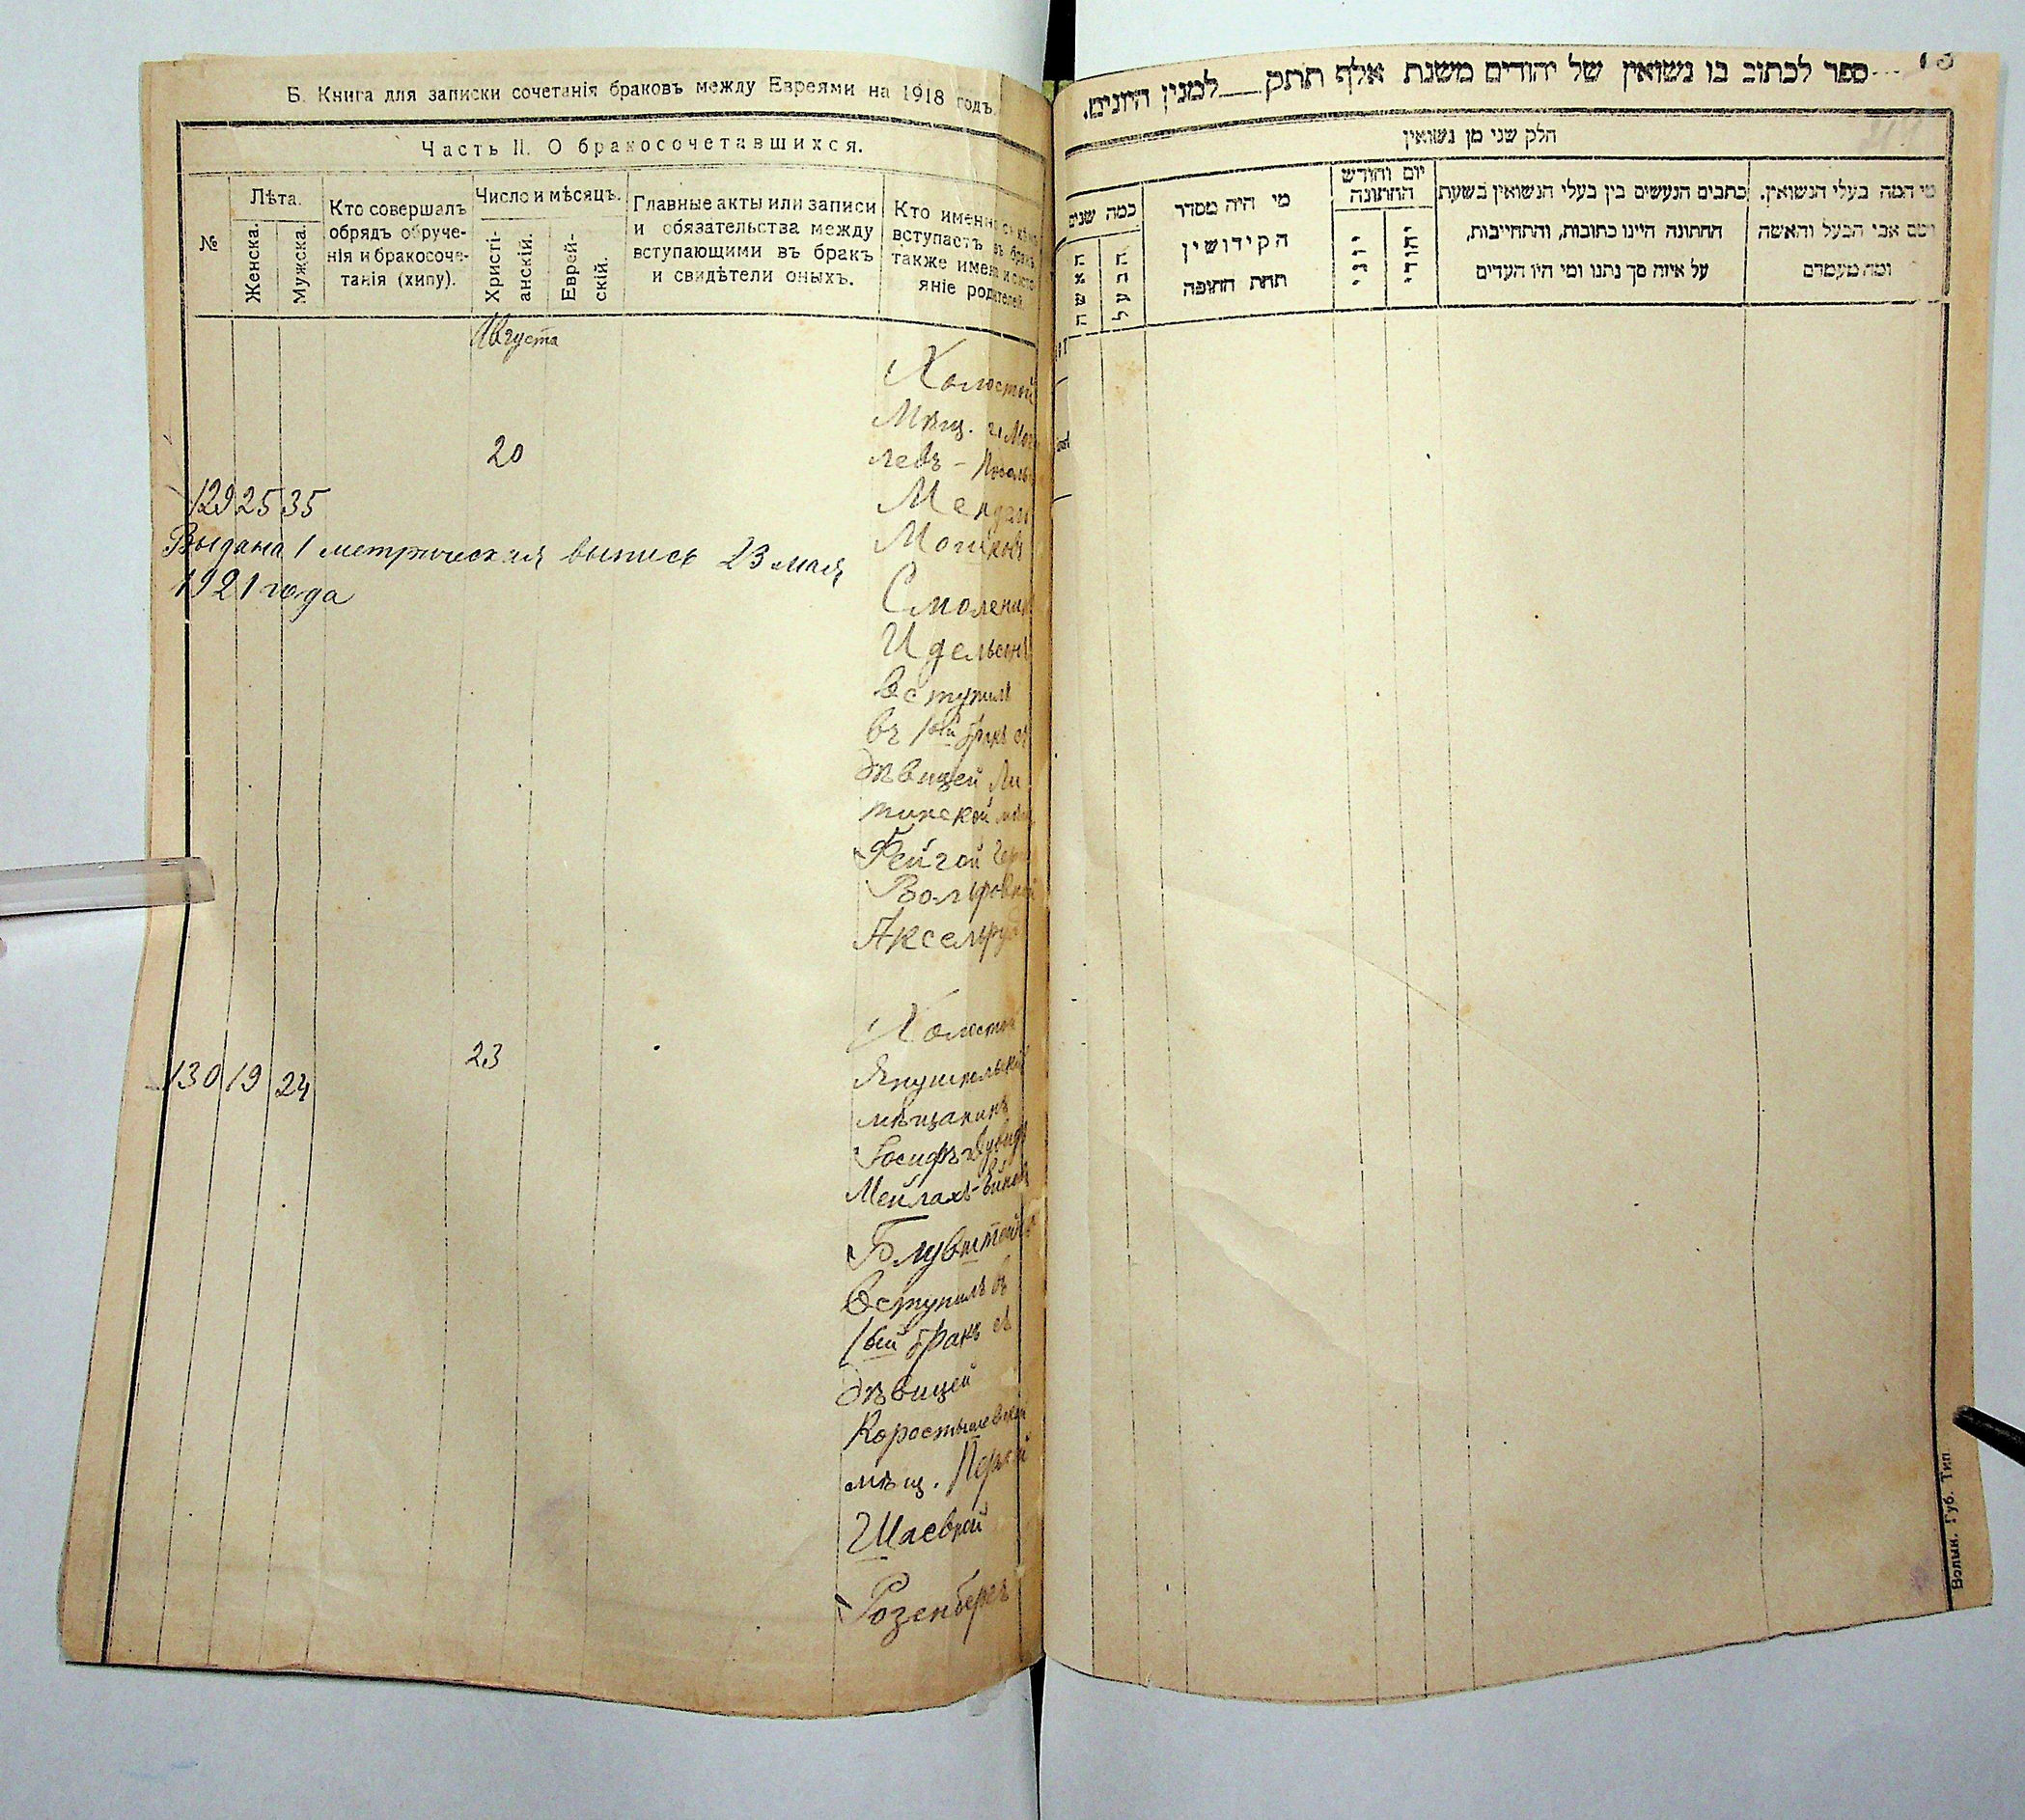 Б. Книга для записки сочетанія браковъ между Евреями на 1918 годъ.
Часть II. О бракосочетавшихся.
№
Лѣта.
Женска.
Мужска.
Кто совершалъ
обрядъ обруче-
нія и бракосоче-
танія (хипу).
Число и мѣсяцъ.
Христі-
анскій.
Еврей-
скій.
Главные акты или записи
и обязательства между
вступающими въ бракъ
и свидѣтели оныхъ.
Кто именно съ кѣмъ
вступаетъ въ бракъ
также имена и состо-
яніе родителей.
Августа
129 25 35
20
Холостой
Мѣщ. г. Мог
левъ - Подоль
Мендель
Мошковъ
Идельсонъ
вступилъ
въ 1ый бракъ съ
дѣвицей Ли
тинской мѣщ
Фейгой
Вольфовной
Аксельруд
Выдана 1 метрическая выпись 23 мая
1921 года
130 19 24
23
Холостой
Янушпольскій
мѣщанинъ
Іосифъ-Дувидъ
Мейлахъ-
Блувштейнъ
вступилъ въ
1ый бракъ съ
дѣвицей
Коростышевской
мѣщ. Перлей
Шаевной
Розенбергъ
ספר לכתוב בו נשואין של יהודים משנת אלף תתק למנין היונים.
חלק שני מן נשואין
מי המה בעלי הנשואין.
ושם אבי הבעל והאשה
ומה מעמדם
כתבים הנעשים בין בעלי הנשואין בשעת
החתונה היינו כתובות, והתחייבות,
על איזה סך נתנו ומי היו העדים
יום וחודש
החתונה
יהודי
יוני
מי היה מסדר
הקידושין
תחת החופה
כמה שנים
הבעל
האשה
Волын. Губ. Тип